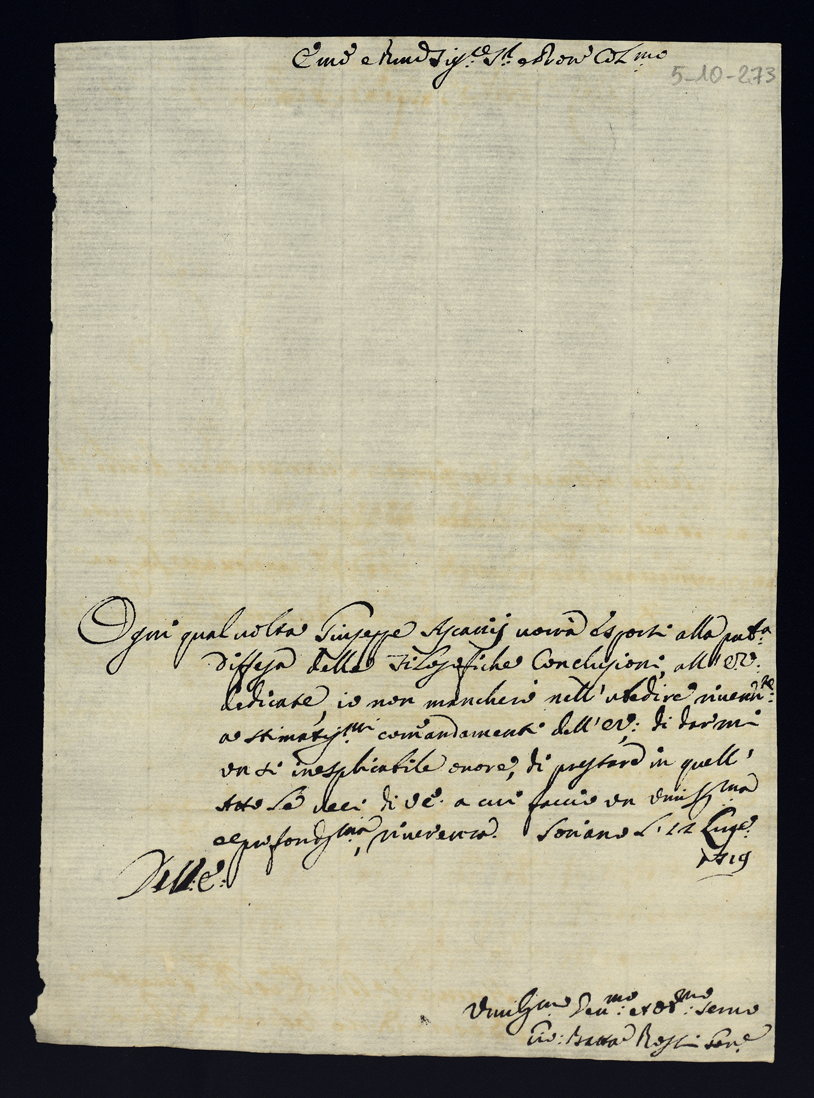 Emo e Rmo Sig.re S.r e Pron Col.mo
5-10-273
Ogni qual volta Giuseppe Ascanij vorrà esporsi alla pub.a
diffesa delle Filosofiche Conclusioni, all'E.V.
dedicate, io non mancherò nell'ubedire
a stimatiss.mi comandamenti dell'E.V.: di darmi
un sì inesplicabile onore, di prestare in quell'
Atto le veci di V.E. a cui faccio un umiliss.ma
e profondiss.ma riverenza. Soriano L. 12
1719
Dell'E.
Umiliss.mo Dev.mo et Obl.mo Servo
Gio: Batta Rossi